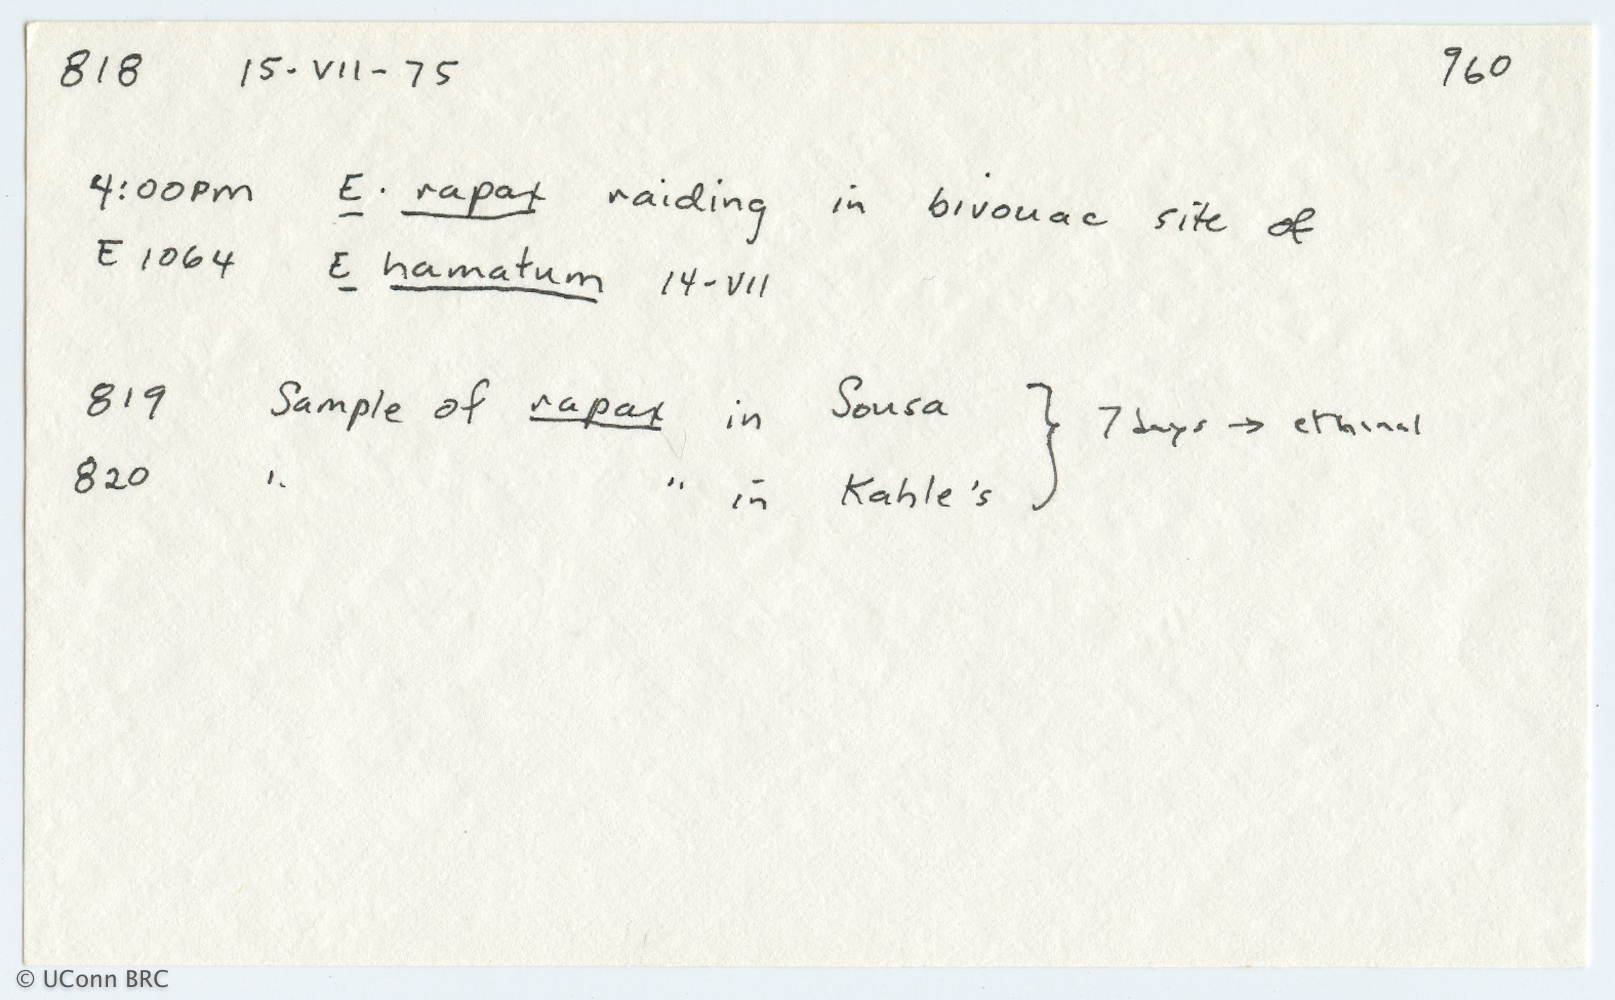 818 15-VII-75 960
4:00pm E. rapax raiding in bivouac site of
E 1064 E hamatum 14-VII
819 Sample of rapax in Sousa } 7 days → ethanal
820 " " in Kahle's
© UConn BRC